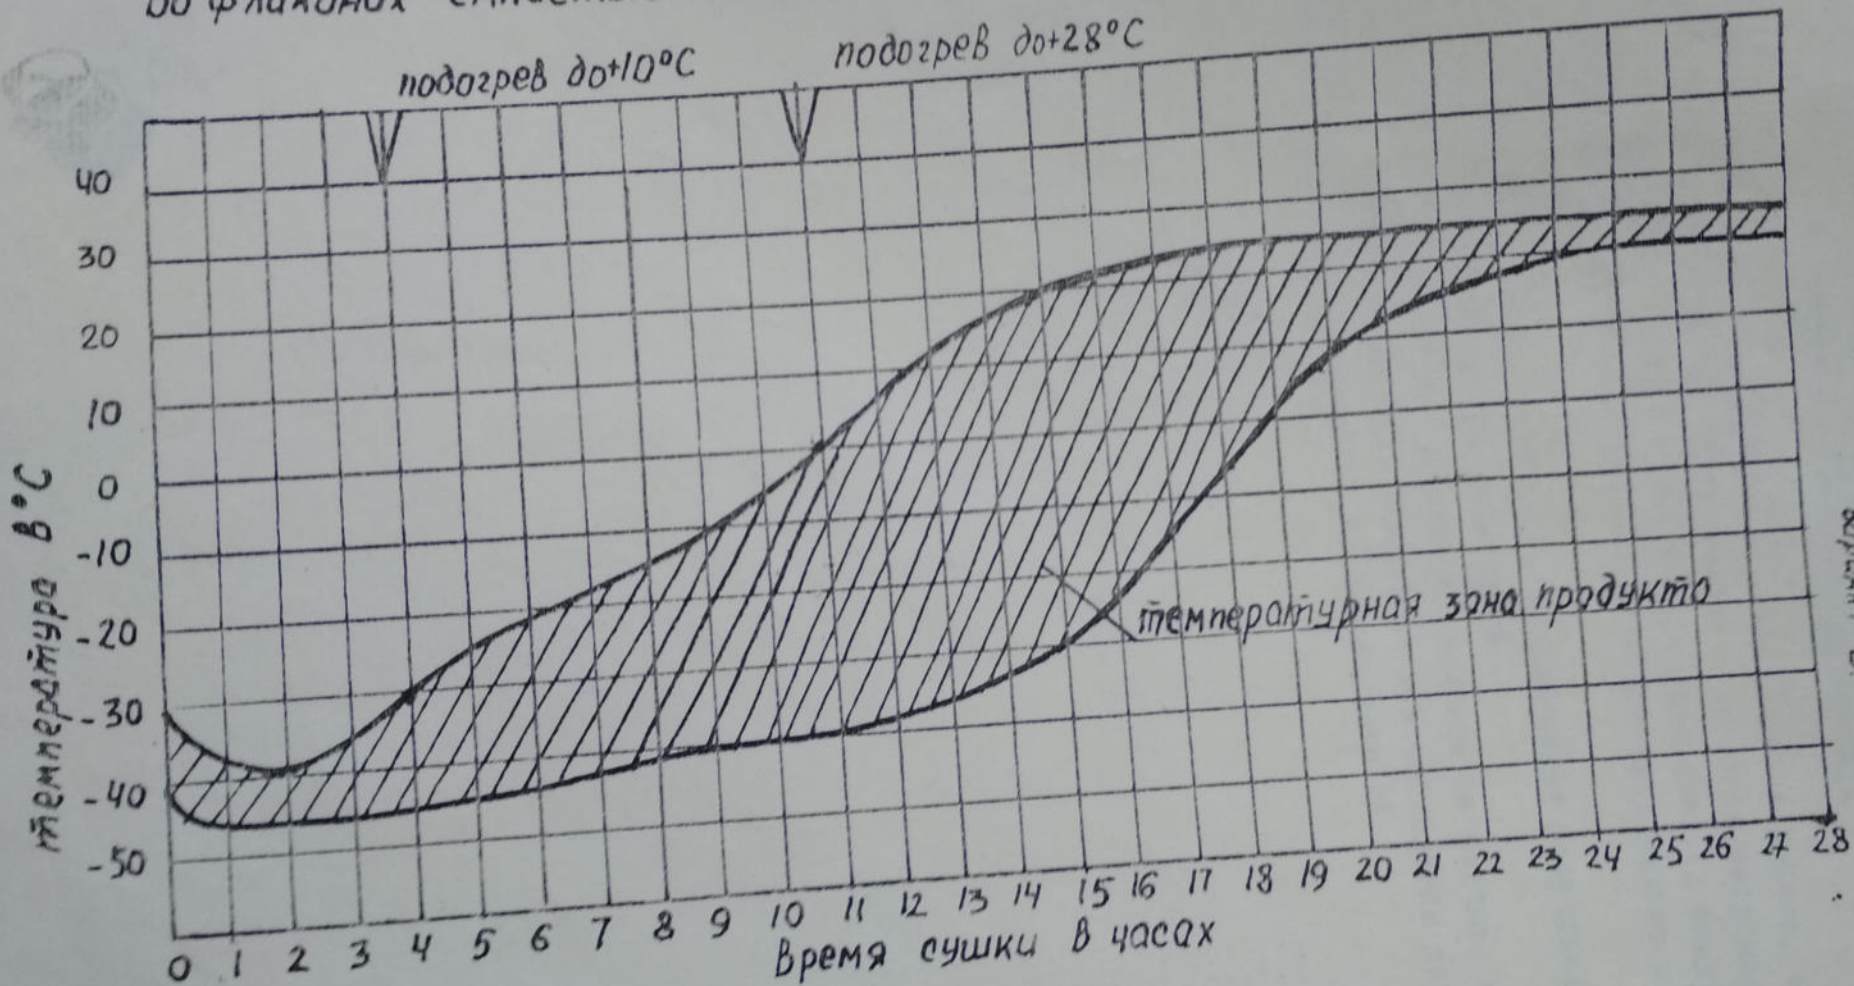 во флаконах
подогрев до+10°С
подогрев до+28°С
40
30
20
10
0
-10
-20
-30
-40
-50
температура в °С
температурная зона продукта
0 1 2 3 4 5 6 7 8 9 10 11 12 13 14 15 16 17 18 19 20 21 22 23 24 25 26 27 28
Время сушки в часах